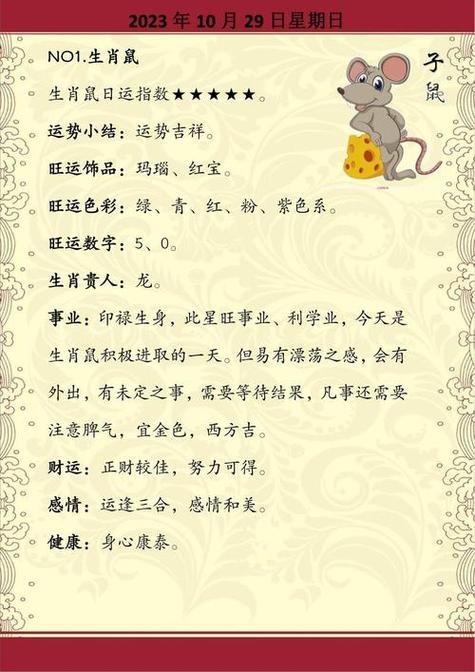 2023 年 10 月 29 日星期日
NO1.生肖鼠
子鼠
生肖鼠日运指数★★★★★。
运势小结：运势吉祥。
旺运饰品：玛瑙、红宝。
旺运色彩：绿、青、红、粉、紫色系。
旺运数字：5、0。
生肖贵人：龙。
事业：印禄生身，此星旺事业、利学业，今天是
生肖鼠积极进取的一天。但易有漂荡之感，会有
外出，有未定之事，需要等待结果，凡事还需要
注意脾气，宜金色，西方吉。
财运：正财较佳，努力可得。
感情：运逢三合，感情和美。
健康：身心康泰。